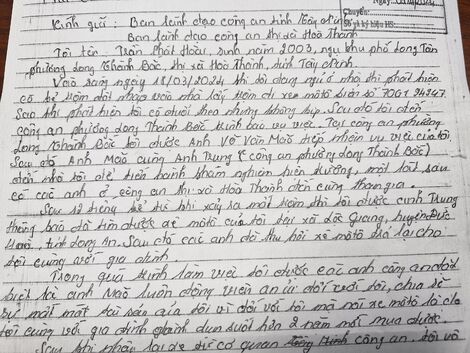 Ngày:
Chuyển:
Số và ký hiệu HS:
Kính gửi: Ban lãnh đạo công an tỉnh Tây Ninh
Ban lãnh đạo công an thị xã Hoà Thành
Tôi tên Trần Phát Hoài, sinh năm 2003, ngụ khu phố Long Tân
phường Long Thành Bắc, thị xã Hoà Thành, tỉnh Tây Ninh.
Vào sáng ngày 18/03/2024 khi tôi đang ngủ ở nhà thì phát hiện
có kẻ trộm đột nhập vào nhà lấy trộm đi xe môtô biển số 70G1
Sau khi phát hiện tôi có đuổi theo nhưng không kịp. Sau đó tôi đến
công an phường Long Thành Bắc trình báo vụ việc. Tại công an phường
Long Thành Bắc tôi được Anh Võ Văn Mão tiếp nhận vụ việc của tôi,
sau đó Anh Mão cùng Anh Trung (công an phường Long Thành Bắc)
đến nhà tôi để tiến hành khám nghiệm hiện trường, một lát sau
có các anh ở công an thị xã Hoà Thành đến cùng tham gia.
Sau 12 tiếng kể từ khi xảy ra mất trộm thì tôi được anh Trung
thông báo đã tìm được xe môtô của tôi tại xã Lộc Giang, huyện Đức
Hoà, tỉnh Long An. Sau đó các anh đã thu hồi xe môtô trả lại cho
tôi cùng với gia đình.
Trong quá trình làm việc tôi được các anh công an đặc
biệt là anh Mão luôn động viên an ủi đối với tôi, chia sẻ
sự mất mát tài sản của tôi vì đối với tôi mà nói xe môtô là cho
tôi cùng với gia đình dành dụm suốt hơn 2 năm mới mua được.
Sau khi nhận lại xe từ cơ quan công an, tôi vô